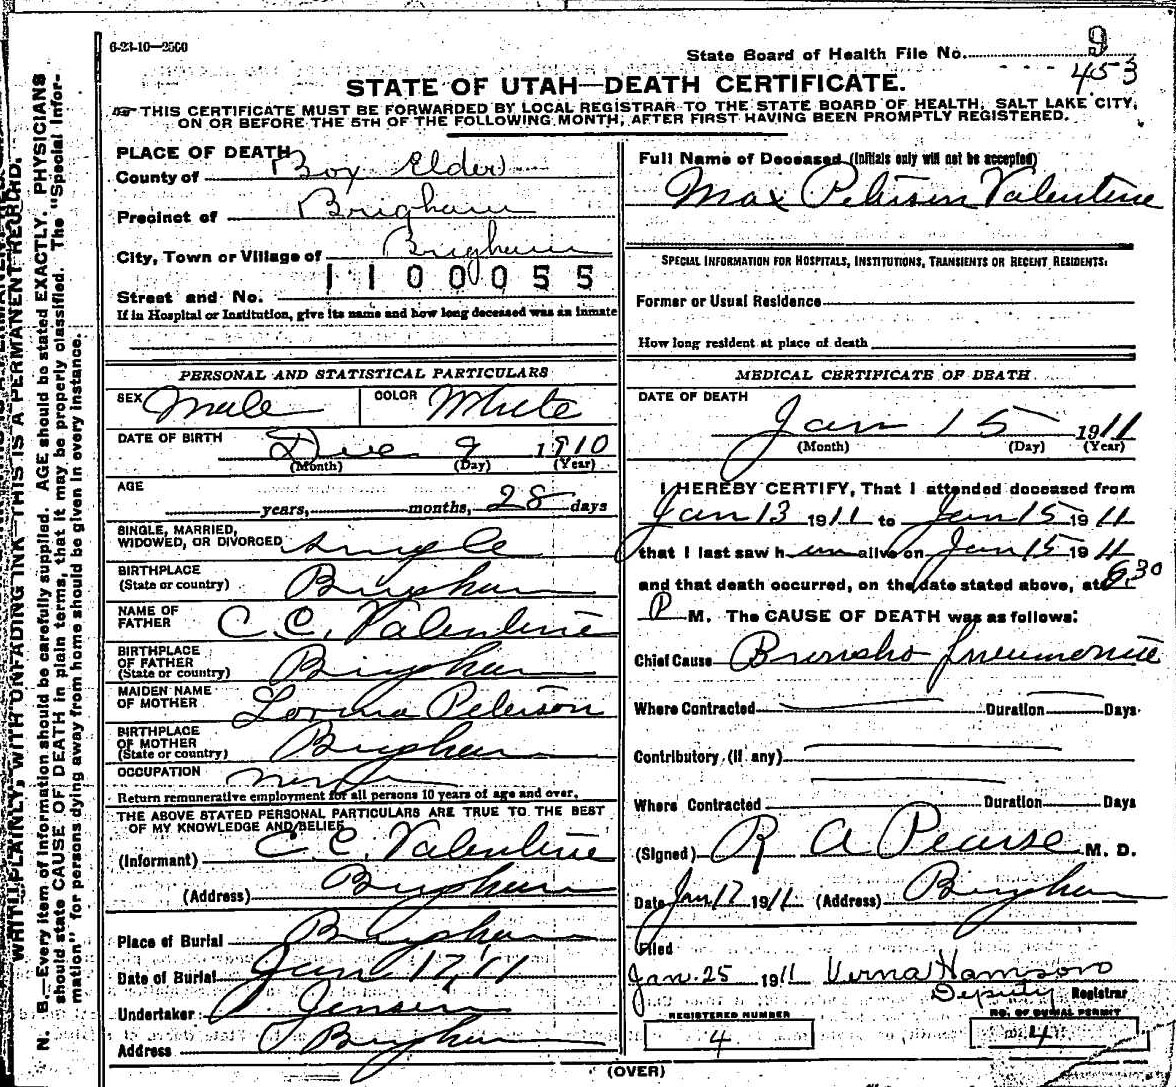 6-23-10—2500
State Board of Health File No. 9
453
STATE OF UTAH—DEATH CERTIFICATE.
THIS CERTIFICATE MUST BE FORWARDED BY LOCAL REGISTRAR TO THE STATE BOARD OF HEALTH, SALT LAKE CITY,
ON OR BEFORE THE 5TH OF THE FOLLOWING MONTH, AFTER FIRST HAVING BEEN PROMPTLY REGISTERED.
PLACE OF DEATH
County of Box Elder
Precinct of Brigham
City, Town or Village of Brigham
1100055
Street and No.
If in Hospital or Institution, give its name and how long deceased was an inmate
PERSONAL AND STATISTICAL PARTICULARS
SEX Male COLOR White
DATE OF BIRTH Dec 9 1910
(Month) (Day) (Year)
AGE
years, months, 28 days
SINGLE, MARRIED,
WIDOWED, OR DIVORCED Single
BIRTHPLACE
(State or country) Brigham
NAME OF
FATHER C. C. Valentine
BIRTHPLACE
OF FATHER
(State or country) Brigham
MAIDEN NAME
OF MOTHER Lovina Peterson
BIRTHPLACE
OF MOTHER
(State or country) Brigham
OCCUPATION
Return remunerative employment for all persons 10 years of age and over.
THE ABOVE STATED PERSONAL PARTICULARS ARE TRUE TO THE BEST
OF MY KNOWLEDGE AND BELIEF
(Informant) C. C. Valentine
(Address) Brigham
Place of Burial Brigham
Date of Burial Jan 17, 11
Undertaker Jensen
Address Brigham
Full Name of Deceased (Initials only will not be accepted)
Max Petersen Valentine
SPECIAL INFORMATION FOR HOSPITALS, INSTITUTIONS, TRANSIENTS OR RECENT RESIDENTS:
Former or Usual Residence
How long resident at place of death
MEDICAL CERTIFICATE OF DEATH
DATE OF DEATH
Jan 15 1911
(Month) (Day) (Year)
I HEREBY CERTIFY, That I attended deceased from
Jan 13 1911 to Jan 15 1911
that I last saw h im alive on Jan 15 1911
and that death occurred, on the date stated above, at 6.30
P M. The CAUSE OF DEATH was as follows:
Chief Cause Bronsho pneumonia
Where Contracted Duration Days
Contributory (if any)
Where Contracted Duration Days
(Signed) R A Pearse M. D.
Date Jan 17 1911 (Address) Brigham
Filed
Jan. 25 1911 Verna Hamson
Deputy Registrar
REGISTERED NUMBER NO. OF BURIAL PERMIT
4 4
(OVER)
WRITE PLAINLY, WITH UNFADING INK—THIS IS A PERMANENT RECORD.
N. B.—Every item of information should be carefully supplied. AGE should be stated EXACTLY. PHYSICIANS
should state CAUSE OF DEATH in plain terms, that it may be properly classified. The "Special Infor-
mation" for persons dying away from home should be given in every instance.